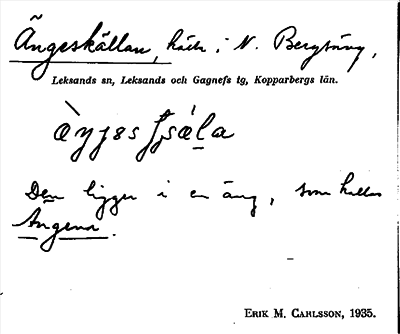 Ängeskällan, källa i N. Bergsäng,
Leksands sn, Leksands och Gagnefs tg, Kopparbergs län.
Den ligger i en äng, som kallas
Angena.
ERIK M. CARLSSON, 1935.